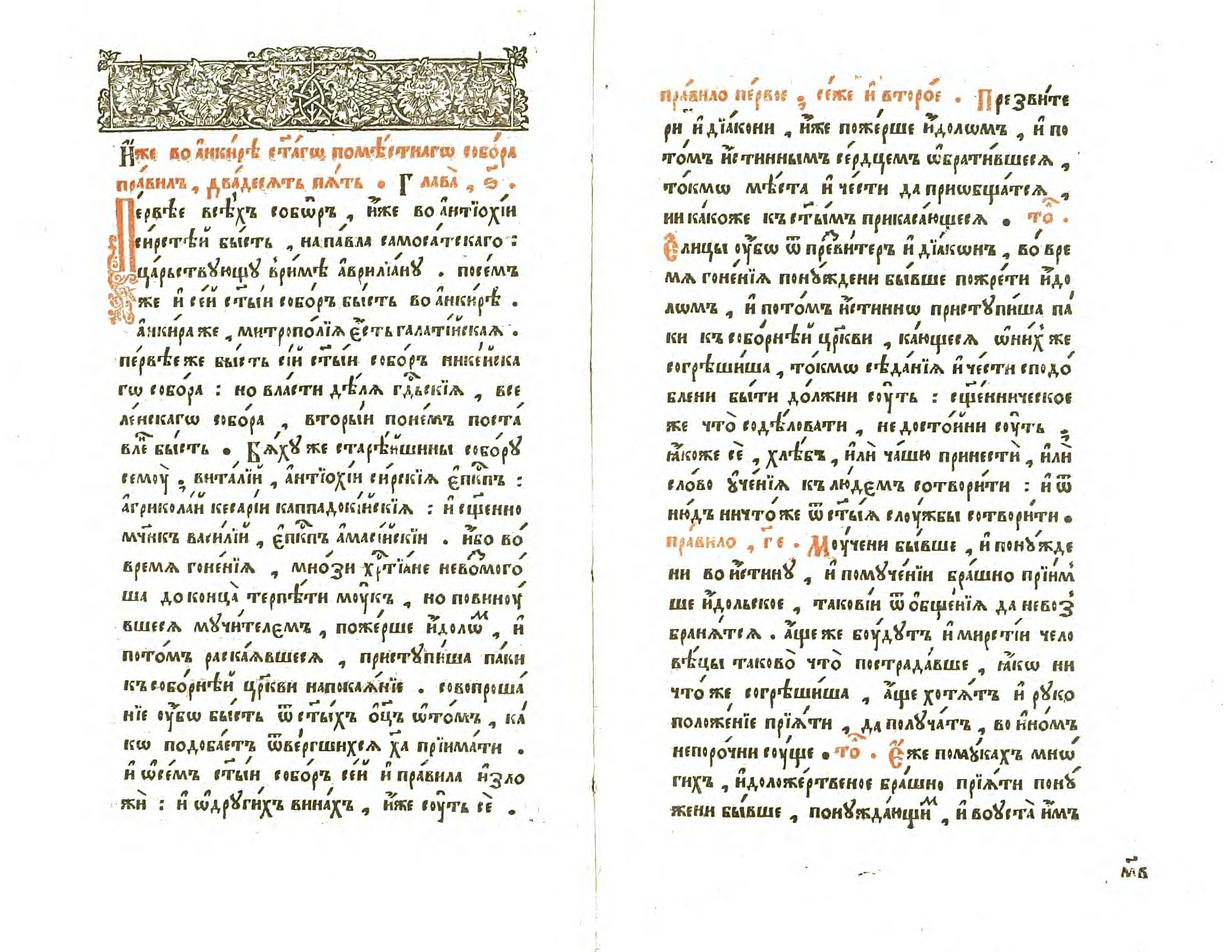 И҆́же во а҆нки́рѣ ст҃а́гѡ помѣ́стнагѡ собо́ра
пра́вилъ , два́десѧть пѧ́ть . Глава̀ , ѕ҃ .
Пе́рвѣе всѣ́хъ собѡ́ръ , и҆́же во а҆нтїохі́и
си́рстѣй бы́сть , на па́вла самоса́тскаго :
ца́рьствующу в ри́мѣ а҆вриліа́ну . посе́мъ
же и҆ се́й ст҃ы́и собо́ръ бы́сть во а҆нки́рѣ .
а҆нки́ра же , митропо́лїѧ є҆́сть гала́тійскаѧ .
пе́рвѣе же бы́сть сі́й ст҃ы́и собо́ръ нике́йска
гѡ собо́ра : но вла́сти дѣ́лѧ гд҇ьскїѧ , все
ле́нскагѡ собо́ра , вторы́и поне́мъ поста́
вле́ бы́сть . Бѧ́ху же старѣ́йшины собо́ру
семоу̀ , вита́лїй , а҆нтїохі́и си́рскїѧ є҆пкⷭ҇пъ :
а҆грикола́й кесарі́и каппадокі́йскїѧ : и҆ сщ҃е́нно
мч҃нкъ васи́лїй , є҆пкⷭ҇пъ а҆масі́йскїи . и҆́бо во
вре́мѧ гоне́нїѧ , мно́зи хрⷭ҇тїа́не невоⷥмого́
ша до конца̀ терпѣ́ти моу́къ , но повиноу́
вшесѧ мучи́телємъ , поже́рше и҆́долѡⷨ , и҆
пото́мъ раска́ѧвшесѧ , пристꙋпи́ша па́ки
къ собо́рнѣй цр҃кви на пока́ѧнїе . совопроша́
нїе оу҆́бѡ бы́сть ѿ ст҃ы́хъ ѻ҆ц҃ъ ѡ҆ то́мъ , ка́
кѡ подоба́етъ ѿве́ргшихсѧ хр҃та̀ прїима́ти .
и҆ ѡ҆ се́мъ ст҃ы́и собо́ръ се́й и҆ пра́вила и҆зло
жѝ : и҆ ѡ҆ други́хъ вина́хъ , и҆́же соу́ть сѐ .
пра́вило пе́рвое , се́же и҆ второ́е . Презви́те
ри и҆ дїа́кони , и҆́же поже́рше и҆́доломъ , и҆ по
то́мъ и҆́стиннымъ се́рдцемъ ѡ҆брати́вшесѧ ,
то́кмѡ мѣ́ста и҆ че́сти да приѡбща́тсѧ ,
ни ка́коже къ ст҃ы́мъ прикаса́ющесѧ . то́ⷧ .
Є҆ли́цы оу҆́бѡ ѿ презви́теръ и҆ дїа́кѡнъ , во вре
мѧ гоне́нїѧ понꙋ́ждени бы́вше пожре́ти и҆́до
лѡмъ , и҆ пото́мъ и҆́стиннѡ пристꙋпи́ша па́
ки къ собо́рнѣй цр҃кви , ка́ющесѧ ѡ҆ ни́хже
согрѣши́ша , то́кмѡ сѣда́нїѧ и҆ че́сти сподо́
блени бы́ти до́лжни соу́ть : сщ҃е́нническое
же что̀ содѣ́ловати , недосто́йни соу́ть ,
ꙗ҆́коже сѐ , хлѣ́бъ , и҆лѝ ча́шю принестѝ , и҆лѝ
сло́во ᲂу҆че́нїѧ къ лю́дємъ сотвори́ти : и҆ ѿ
ню́дъ ничто́же ѿ ст҃ы́ѧ слоу́жбы сотвори́ти .
пра́вило , г҃ е . Моу́чени бы́вше , и҆ понꙋ́жде
ни во и҆́стинꙋ , и҆ по муче́нїи бра́шно прїи́м
ше и҆́дольское , такові́и ѿ о҆бще́нїѧ да невоз
бранѧ́тсѧ . а҆́ще же боу́дутъ и҆ мирсті́и чело
вѣ́цы таково̀ что̀ пострада́вше , ꙗ҆́кѡ ни
что́же согрѣши́ша , а҆́ще хотѧ́тъ и҆ руко
положе́нїе прїѧ́ти , да полу́чатъ , во и҆но́мъ
непоро́чни соу́ще . то́ⷧ . Є҆́же по му́кахъ мно́
гихъ , и҆доложе́ртвеное бра́шно прїѧ́ти понꙋ́
жени бы́вше , понꙋжда́ющиⷨ , и҆ во оуста̀ и҆̀мъ
м҃в